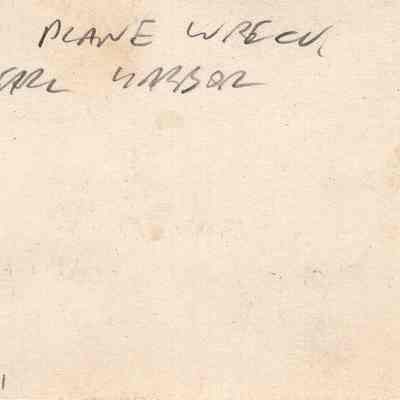 PLANE WRECK
EARL HARBOR
1